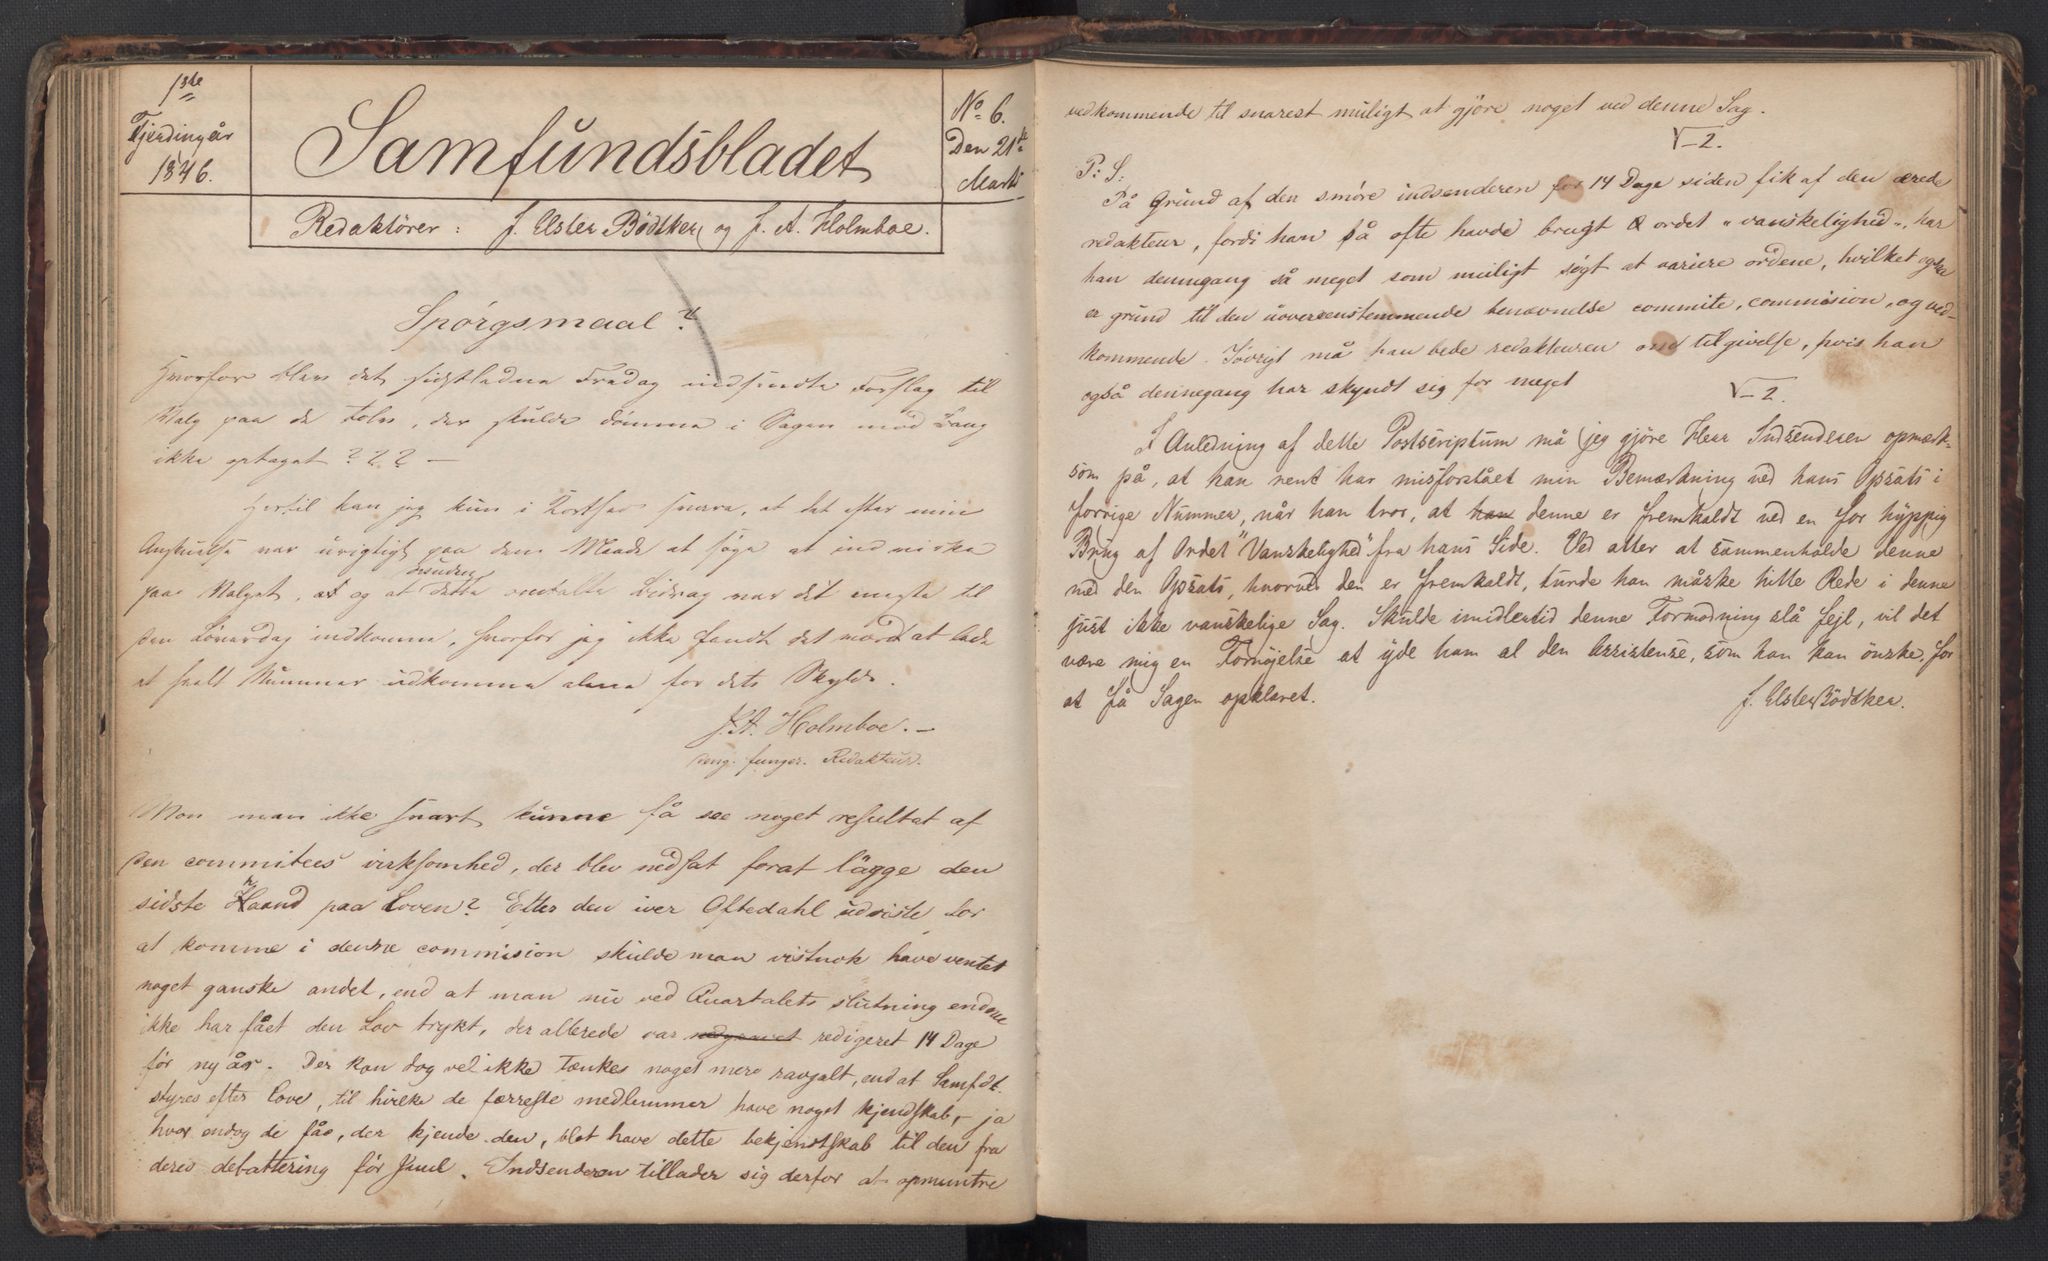 1ste
Fjerdingår
1846.
Samfundsbladet
No 6.
Den 21de
Marts
Redaktører: J. Elster Bödtker og J. A. Holmboe.
Spørgsmaal?
Hvorfor blev det sidstledne Fredag indsendte Forslag til
Valg paa de Folk, der skulde dømme i Sagen mod Lang
ikke optaget???—
Hertil kan jeg kun i Korthed svare, at det efter min
Anskuelse var urigtigt paa den Maade at søge at indvirke
paa Valget, at og at dette desuden omtalte Bidrag var det eneste til
den Løverdag indkomne, hvorfor jeg ikke fandt det værdt at lade
et heelt Nummer udkomme alene for dets Skyld.
J. A. Holmboe.—
deng. funger. Redakteur.
Mon man ikke snart kunne få see noget resultat af
den commitees virksomhed, der blev nedsat forat lägge den
sidste Haand paa Loven? Efter den iver Oftedahl udviste for
at komme i denne commision skulde man vistnok have ventet
noget ganske andet, end at man nu ved Quartalets slutning endnu
ikke har fået den Lov trykt, der allerede var redigeret 14 Dage
før nyår. Der kan dog vel ikke tænkes noget mere ravgalt, end at Samfdt.
styres efter Love, til hvilke de færreste medlemmer have noget kjendskab,— ja
hvor endog de fåe, der kjende den, blot have dette bekjendtskab til den fra
deres debattering før Juul. Indsenderen tillader sig derfor at opmuntre
vedkommende til snarest muligt at gjøre noget ved denne Sag.
√–2.
P: S:
På Grund af den smøre indsenderen for 14 Dage siden fik af den ærede
redakteur, fordi han så ofte havde brugt ordet "vanskelighed", har
han denngang så meget som muligt søgt at variere ordene, hvilket også
er grund til den uoverensstemmende benævnelse commite, commision, og ved-
kommende. Iøvrigt må han bede redakteuren om tilgivelse, hvis han
også dennegang har skyndt sig for meget
√–2.
I Anledning af dette Postscriptum må jeg gjöre Herr Indsenderen opmærk-
som på, at han rent har misforstået min Bemærkning ved hans Opsats i
forrige Nummer, når han tror, at han denne er fremkaldt ved en for hyppig
Brug af Ordet "Vanskelighed" fra hans Side. Ved atter at sammenholde denne
med den Opsats, hvorved den er fremkaldt, turde han måske hitte Rede i denne
just ikke vanskelige Sag. Skulde imidlertid denne Formodning slå fejl, vil det
være mig en Fornöjelse at yde ham al den Assistense, som han kan önske, for
at få Sagen opklaret.
J. Elster Bödtker.